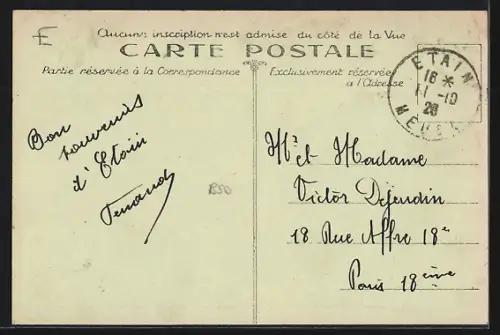 Aucune inscription n'est admise du côté de la Vue
CARTE POSTALE
Partie réservée à la Correspondance
Exclusivement réservée
à l'Adresse
ETAIN
18 *
11 -10
28
MEUSE
Bon
souvenirs
d'Etain
Fernand
Mr et Madame
Victor Dejeudin
18 Rue Affre 18e
Paris 18ème